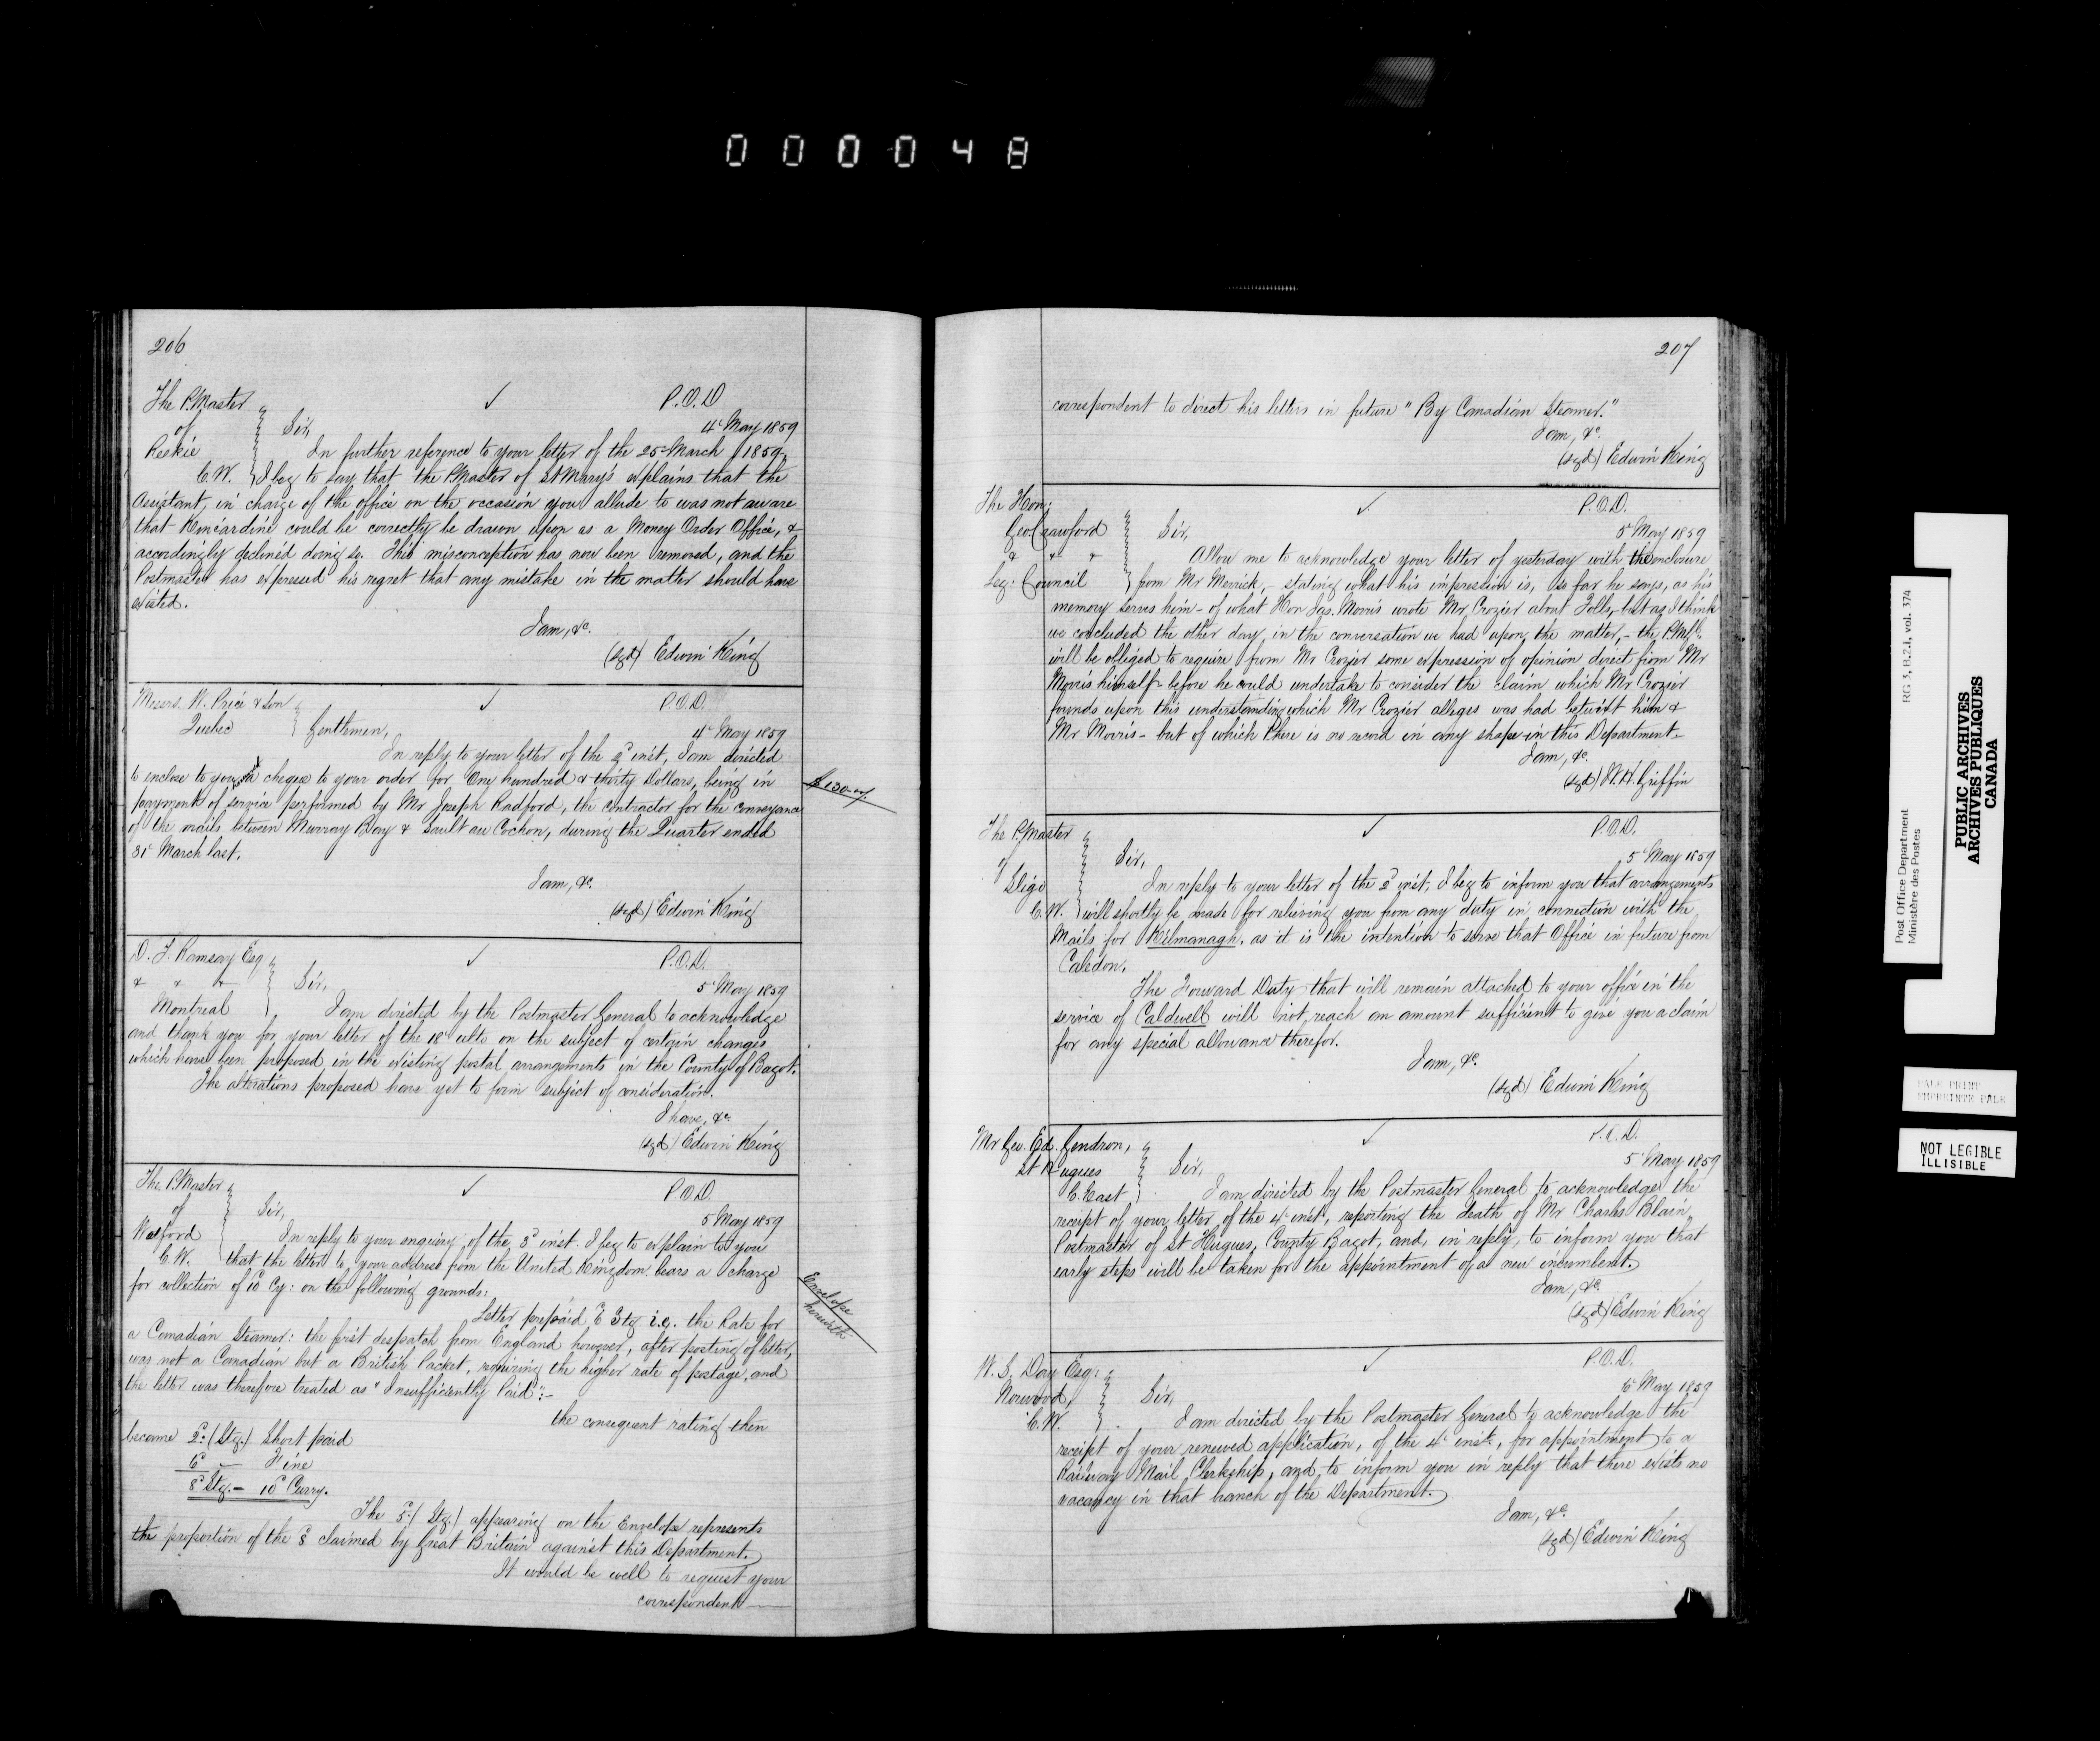 000048
206
The P.Master
of
Reekie
C.W.
P.O.D
4 May 1859
Sir,
In further reference to your letter of the 25 March 1859,
I beg to say that the P.Master of St Mary's explains that the
Assistant, in charge of the office on the occasion you allude to was not aware
that Kincardine could be correctly be drawn upon as a Money Order Office, &
accordingly declined doing so. This misconception has now been removed, and the
Postmaster has expressed his regret that any mistake in the matter should have
existed.
I am, &c.
(sgd) Edwin King
Messrs. W. Price & Son
Quebec
P.O.D.
4 May 1859
Gentlemen,
In reply to your letter of the 2d inst, I am directed
to enclose to you a cheque to your order for One hundred & thirty Dollars, being in
payment of service performed by Mr Joseph Radford, the contractor for the conveyance
of the mails between Murray Bay & Sault au Cochon, during the Quarter ended
31 March last.
$130-
I am, &c.
(sgd) Edwin King
D. T. Ramsay Esq
& & &
Montreal
P.O.D.
5 May 1859
Sir,
I am directed by the Postmaster General to acknowledge
and thank you for your letter of the 18 ulto on the subject of certain changes
which have been proposed in the existing postal arrangements in the County of Bagot.
The alterations proposed have yet to form subject of consideration.
I have, &c
(sgd) Edwin King
The P.Master
of
Watford
C.W.
P.O.D.
5 May 1859
Sir,
In reply to your enquiry of the 3d inst. I beg to explain to you
that the letter to your address from the United Kingdom bears a charge
for collection of 10d Cy: on the following grounds:
Envelope
herewith
Letter prepaid 6d Stg i.e. the Rate for
a Canadian Steamer: the first despatch from England however, after posting of letter,
was not a Canadian but a British Packet, requiring the higher rate of postage, and
the letter was therefore treated as "Insufficiently Paid":-
the consequent rating then
became 2d (Stg.) Short paid
6d — Fine
8d Stg. — 10d Curry.
The 5d (Stg.) appearing on the Envelope represents
the proportion of the 8d claimed by Great Britain against this Department.
It would be well to request your
correspondent
207
correspondent to direct his letters in future "By Canadian Steamer."
I am, &c.
(sgd) Edwin King
The Hon:
Geo. Crawford
& &
Leg: Council
P.O.D.
5 May 1859
Sir,
Allow me to acknowledge your letter of yesterday with the enclosure
from Mr Merrick, - stating what his impression is, so far he says, as his
memory serves him - of what Hon Jas. Morris wrote Mr Crozier about Tolls, - but as I think
we concluded the other day, in the conversation we had upon the matter, - the P.M.G.
will be obliged to require from Mr Crozier some expression of opinion direct from Mr
Morris himself - before he could undertake to consider the claim which Mr Crozier
founds upon this understanding which Mr Crozier alleges was had betwixt him &
Mr Morris - but of which there is no record in any shape in this Department.
I am, &c.
(sgd) W.H. Griffin
The P.Master
of
Sligo
C.W.
P.O.D.
5 May 1859
Sir,
In reply to your letter of the 2d inst, I beg to inform you that arrangements
will shortly be made for relieving you from any duty in connection with the
Mails for Kilmanagh, as it is the intention to serve that Office in future from
Caledon.
The Forward Duty that will remain attached to your office in the
service of Caldwell will not reach an amount sufficient to give you a claim
for any special allowance therefor.
I am, &c.
(sgd) Edwin King
Mr Geo. Ed. Gendron,
St Hugues
C. East
P.O.D.
5 May 1859
Sir,
I am directed by the Postmaster General to acknowledge the
receipt of your letter of the 4 inst, reporting the death of Mr Charles Blain,
Postmaster of St Hugues, County Bagot, and, in reply, to inform you that
early steps will be taken for the appointment of a new incumbent.
I am, &c.
(sgd) Edwin King
W. S. Day Esq:
Norwood,
C.W.
P.O.D.
6 May 1859
Sir,
I am directed by the Postmaster General to acknowledge the
receipt of your renewed application, of the 4 inst, for appointment to a
Railway Mail Clerkship, and, to inform you in reply that there exists no
vacancy in that branch of the Department.
I am, &c.
(sgd) Edwin King
Post Office Department
Ministère des Postes
RG 3, B.2.1, vol. 374
PUBLIC ARCHIVES
ARCHIVES PUBLIQUES
CANADA
PALE PRINT
EMPREINTE PALE
NOT LEGIBLE
ILLISIBLE